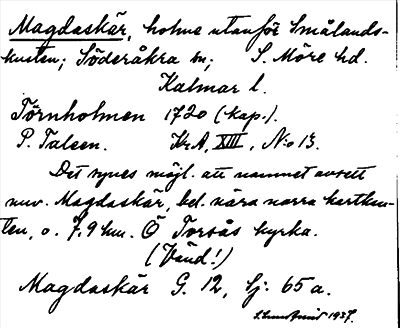 Magdaskär, holme utanför Smålands-
kusten; Söderåkra sn; S. Möre hd.
Kalmar l.
Törnholmen 1720 (kap.).
P. Taleen. Kr.A, XIII, N:o 13.
Det synes möjl. att namnet avsett
nuv. Magdaskär, bel. nära norra kartkan-
ten, o. 7,9 km. Ö Torsås kyrka.
(Vänd!)
Magdaskär G. 12, Sj: 65 a.
1937.